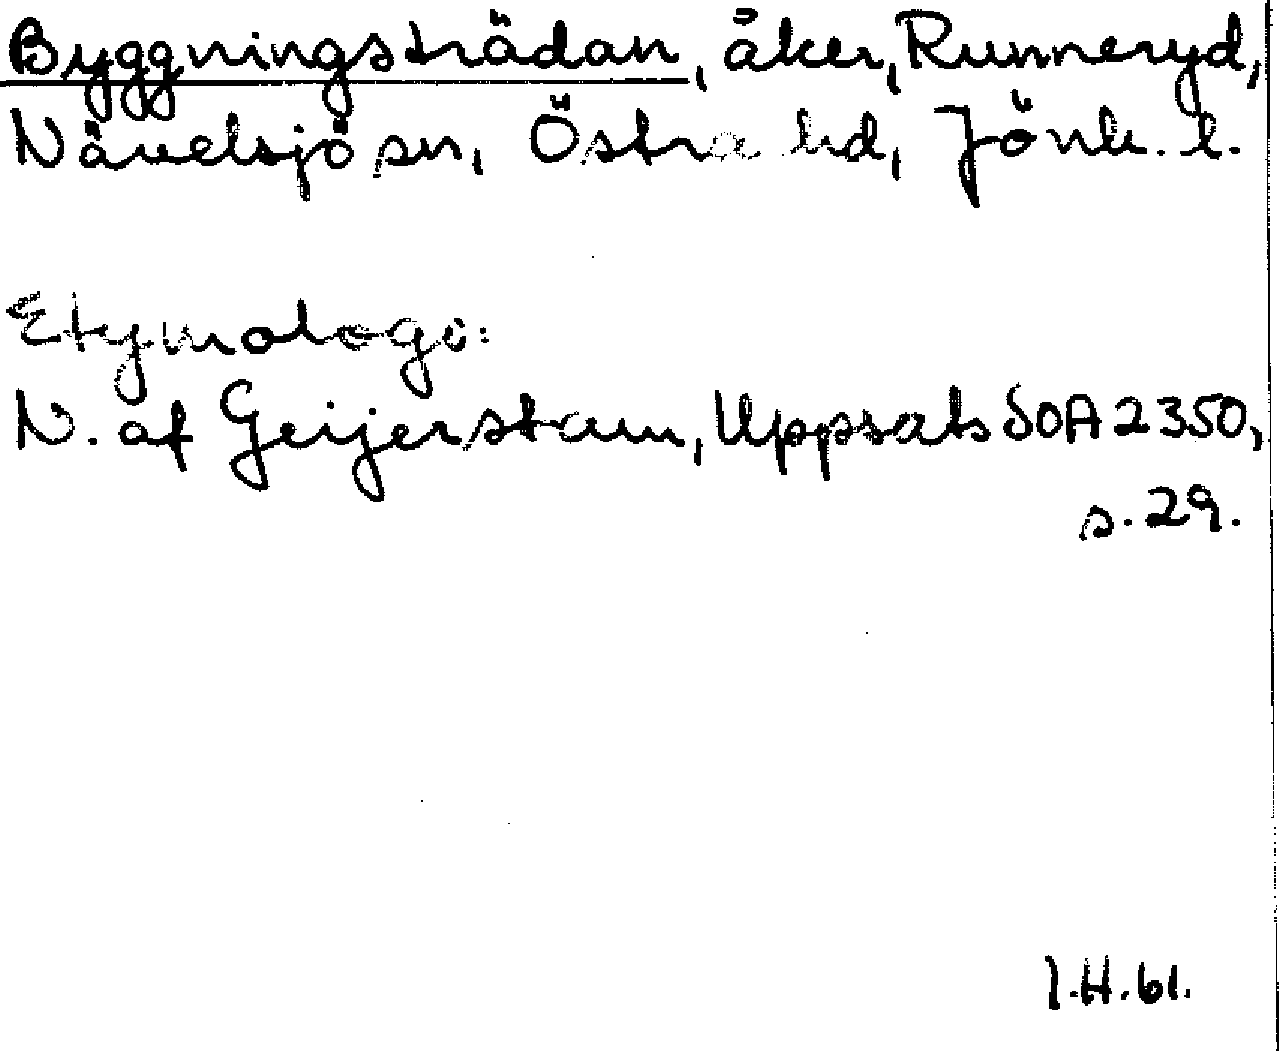 Byggningsträdan, åker, Runneryd,
Nävelsjö sn, Östra hd, Jönk. l.
Etymologi:
N. af Geijerstam, Uppsats SOA 2350,
s. 29.
I.H.61.